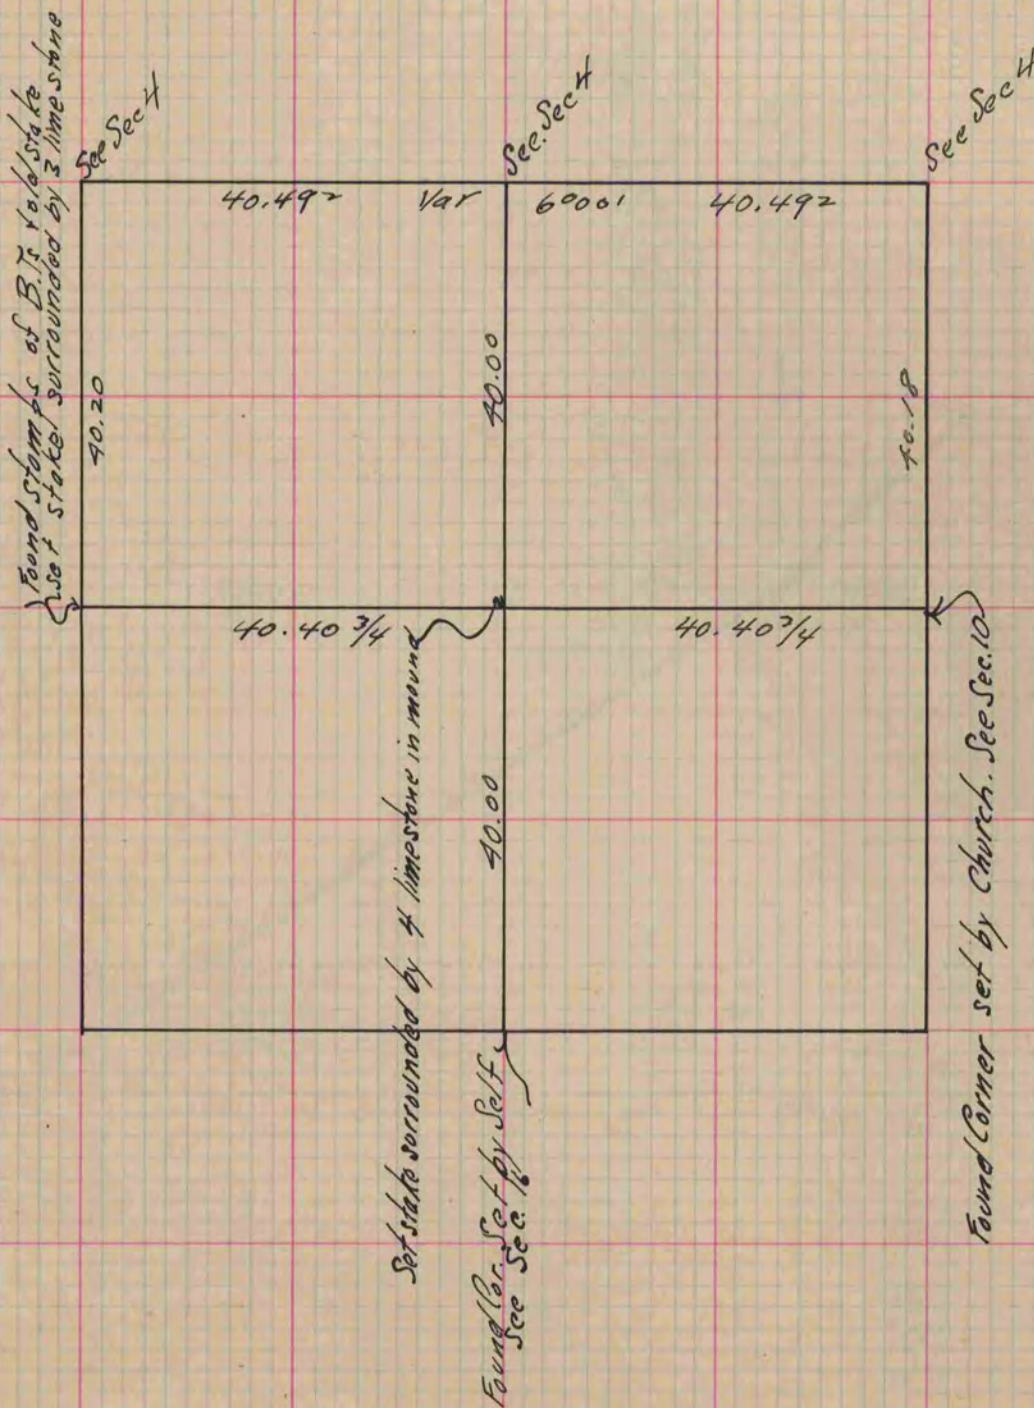 Found stomps of B.Ts & old stake
set stake surrounded by 3 limestone
See Sec 4
See. Sec 4
See Sec 4
40.492 Var 6°00' 40.492
40.20
40.00
40.18
40.40 3/4
40.40 3/4
Set stake surrounded by 4 limestone in mound
40.00
Found Cor. Set by Self
See Sec. 16
Found Corner set by Church. See Sec. 10